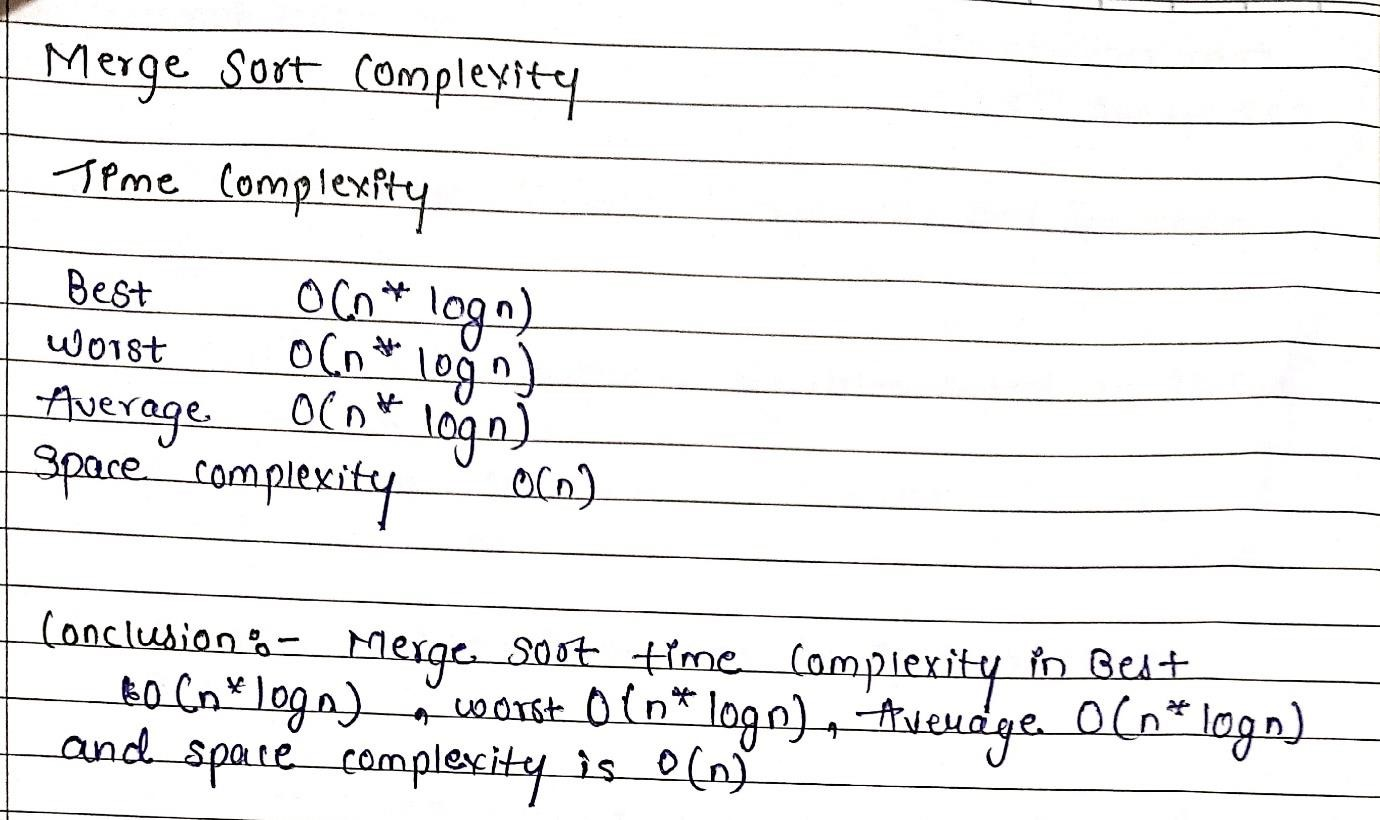 Merge Sort Complexity
Time Complexity
Best O(n* logn)
Worst O(n* logn)
Average O(n* logn)
Space complexity O(n)
Conclusion:- Merge Sort time Complexity in Best
O(n*logn), worst O(n* logn), Average O(n* logn)
and space complexity is O(n)